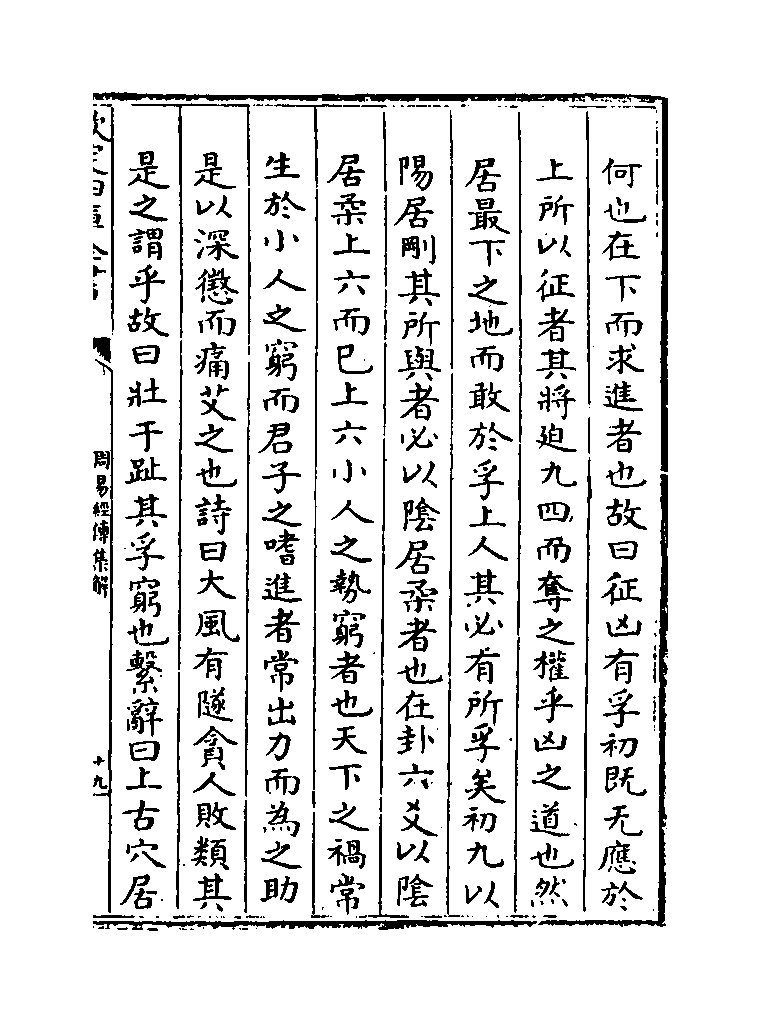 何也在下而求進者也故曰征凶有孚初既无應於
上所以征者其將迫九四而奪之權乎凶之道也然
居最下之地而敢於孚上人其必有所孚矣初九以
陽居剛其所與者必以陰居柔者也在卦六爻以陰
居柔上六而已上六小人之勢窮者也天下之禍常
生於小人之窮而君子之嗜進者常出力而為之助
是以深懲而痛艾之也詩曰大風有隧貪人敗類其
是之謂乎故曰壯于趾其孚窮也繫辭曰上古穴居
欽定四庫全書
周易經傳集解
十九